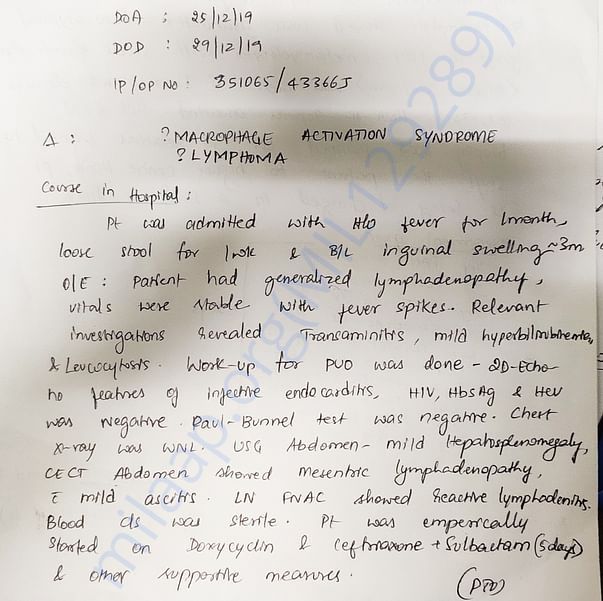 DOA : 25/12/19
DOD : 29/12/19
IP/OP NO : 351065/43366J
Δ : ? MACROPHAGE ACTIVATION SYNDROME
? LYMPHOMA
Course in Hospital :
Pt was admitted with H/o fever for 1month,
loose stool for 1wk & B/L inguinal swelling ~3m
O/E : Patient had generalized lymphadenopathy,
vitals were stable with fever spikes. Relevant
investigations revealed Transaminitis, mild hyperbilirubinemia,
& Leucocytosis. Work-up for PUO was done - 2D-Echo
no features of infective endocarditis, HIV, HbsAg & HCV
was negative. Paul-Bunnel test was negative. Chest
X-ray was WNL. USG Abdomen - mild Hepatosplenomegaly,
CECT Abdomen showed mesentric lymphadenopathy,
c̄ mild ascitis. LN FNAC showed reactive lymphadenitis.
Blood c/s was sterile. Pt was emperically
started on Doxycyclin & Ceftriaxone + Sulbactam (5days)
& other supportive measures.
(PTO)
milaap.org(MIL129289)